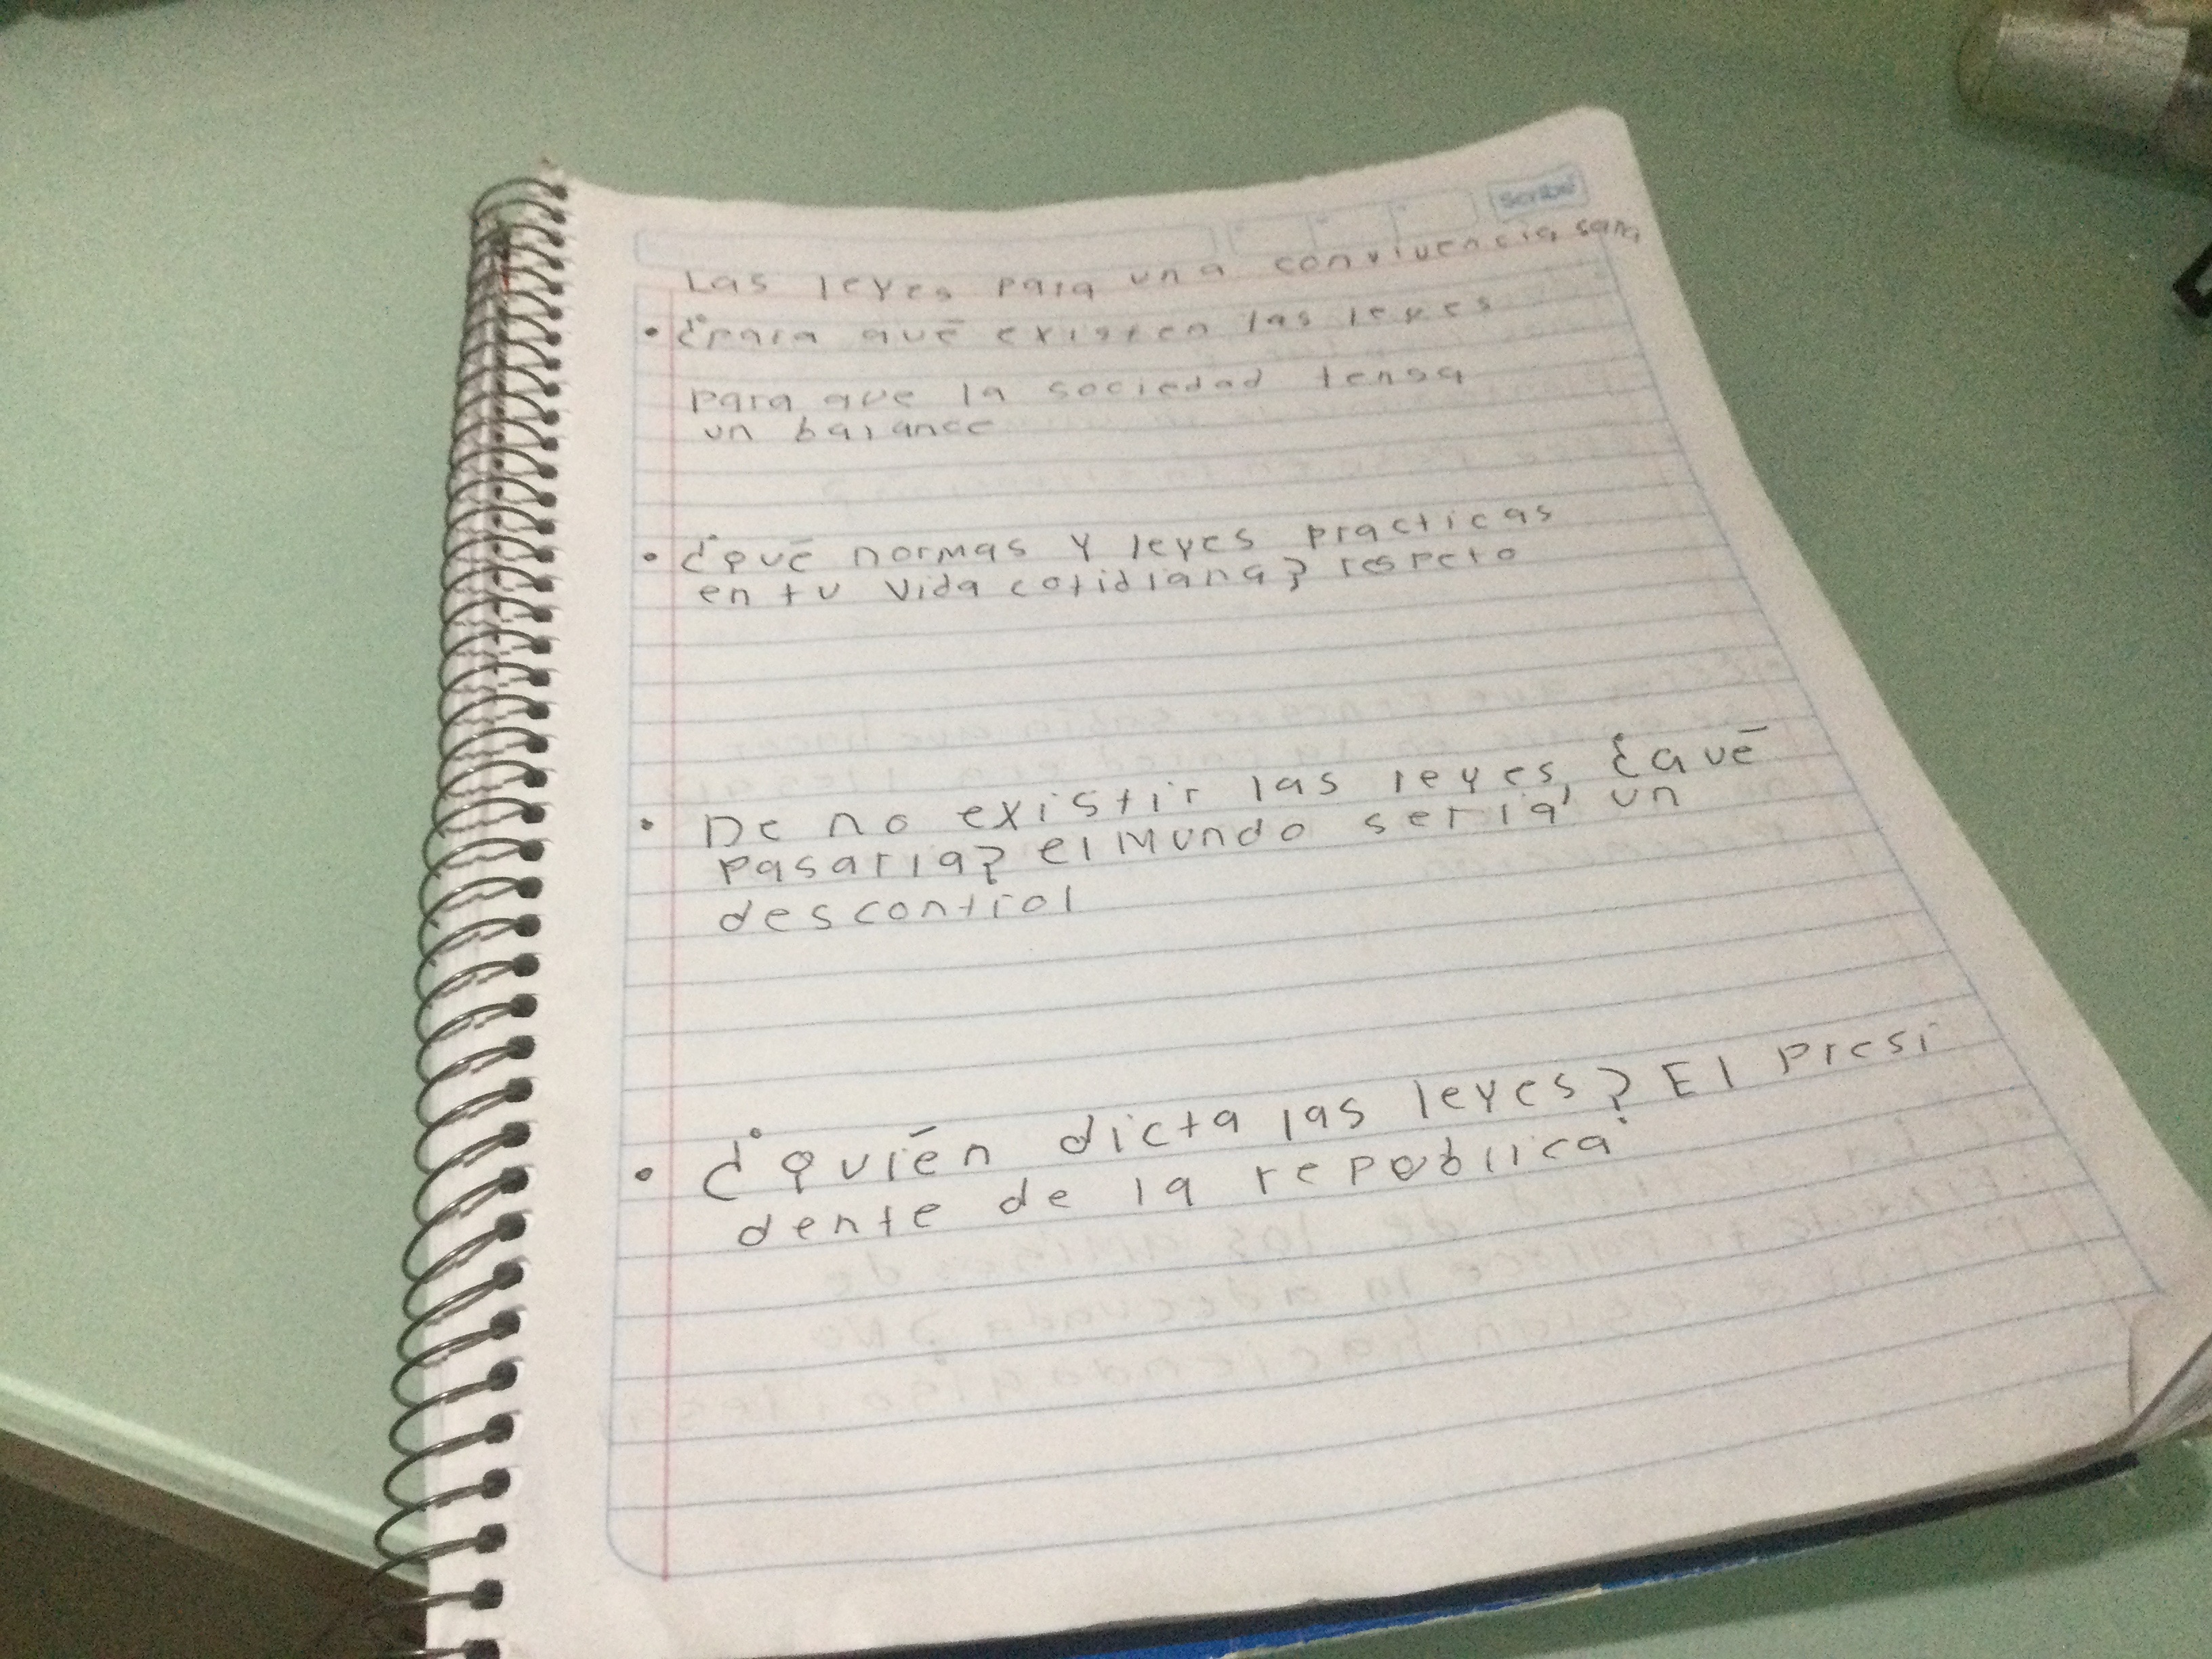 Scribe
Las leyes para una convivencia sana
• ¿para qué existen las leyes
para que la sociedad tenga
un balance
• ¿qué normas y leyes practicas
en tu vida cotidiana? respeto
• De no existir las leyes, ¿qué
pasaria? el Mundo seria un
descontrol
• ¿quién dicta las leyes? El Presi
dente de la republica